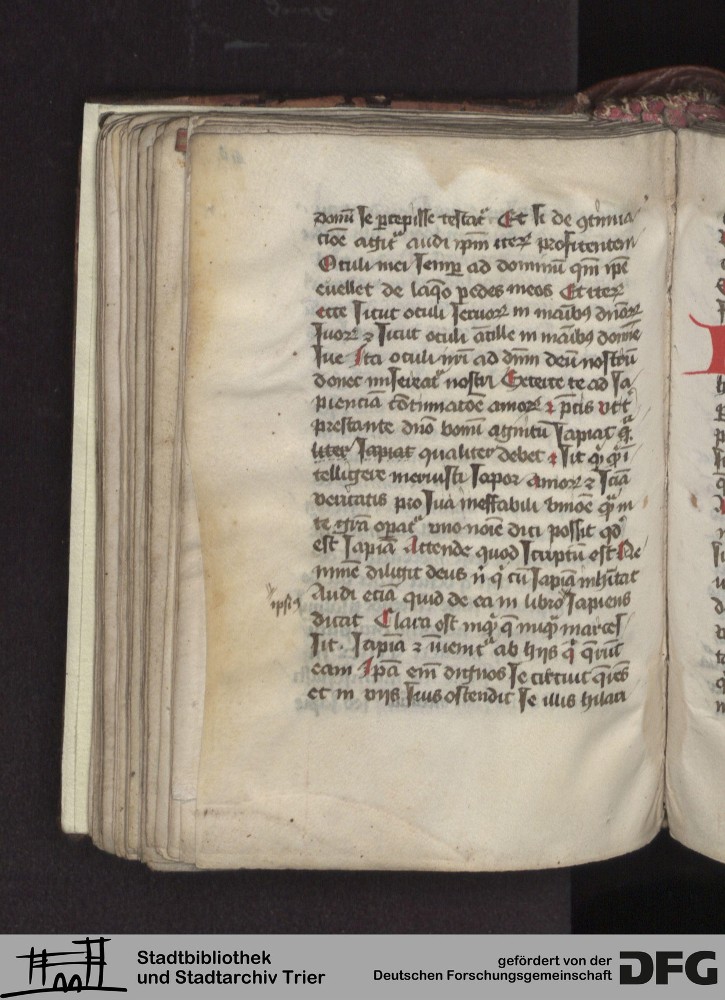 domu se percepisse testat᷑ Et si de 9tinua
cioe agit᷑ audi ip̄m iteꝝ profitentem
Oculi mei semp ad dominū qm̄ ip̄e
euellet de laq̊o pedes meos Et iteꝝ
ecce sicut oculi seruoꝝ in maibꝰ dn̄oꝝ
suoꝝ ⁊ sicut oculi ācille in māibꝰ domīe
sue Ita oculi nr̄i ad dn̄m deū nostrū
donec misereat᷑ nostri Exerce te ad sa
pienciā amoꝝ ⁊
prestante dn̄o bonū agnitū sapiat
liter sapiat qualiter debet ⁊ sit
telligere meruisti sapor amoꝝ ⁊ sc̄ia
veritatis pro sua ineffabili vnioē in
te gr̄am opat᷑ vno noīe dici possit qd
est sapiā Attende quod scriptū est Ne
minē diligit deus n̄ q̄ cū sapiā inhītat
Audi eciā quid de ea in libro sapiens
ipsiꝰ
dicat Clara est inq̄t q̄ nūq̄ marces
sit. sapiā ⁊ īuenit᷑ ab hijs q̄ q̄rūt
eam Ip̄a em̄ dignos se circuit q̄rēs
et in viis suis ostendit se illis hilari
Stadtbibliothek
und Stadtarchiv Trier
gefördert von der
Deutschen Forschungsgemeinschaft
DFG